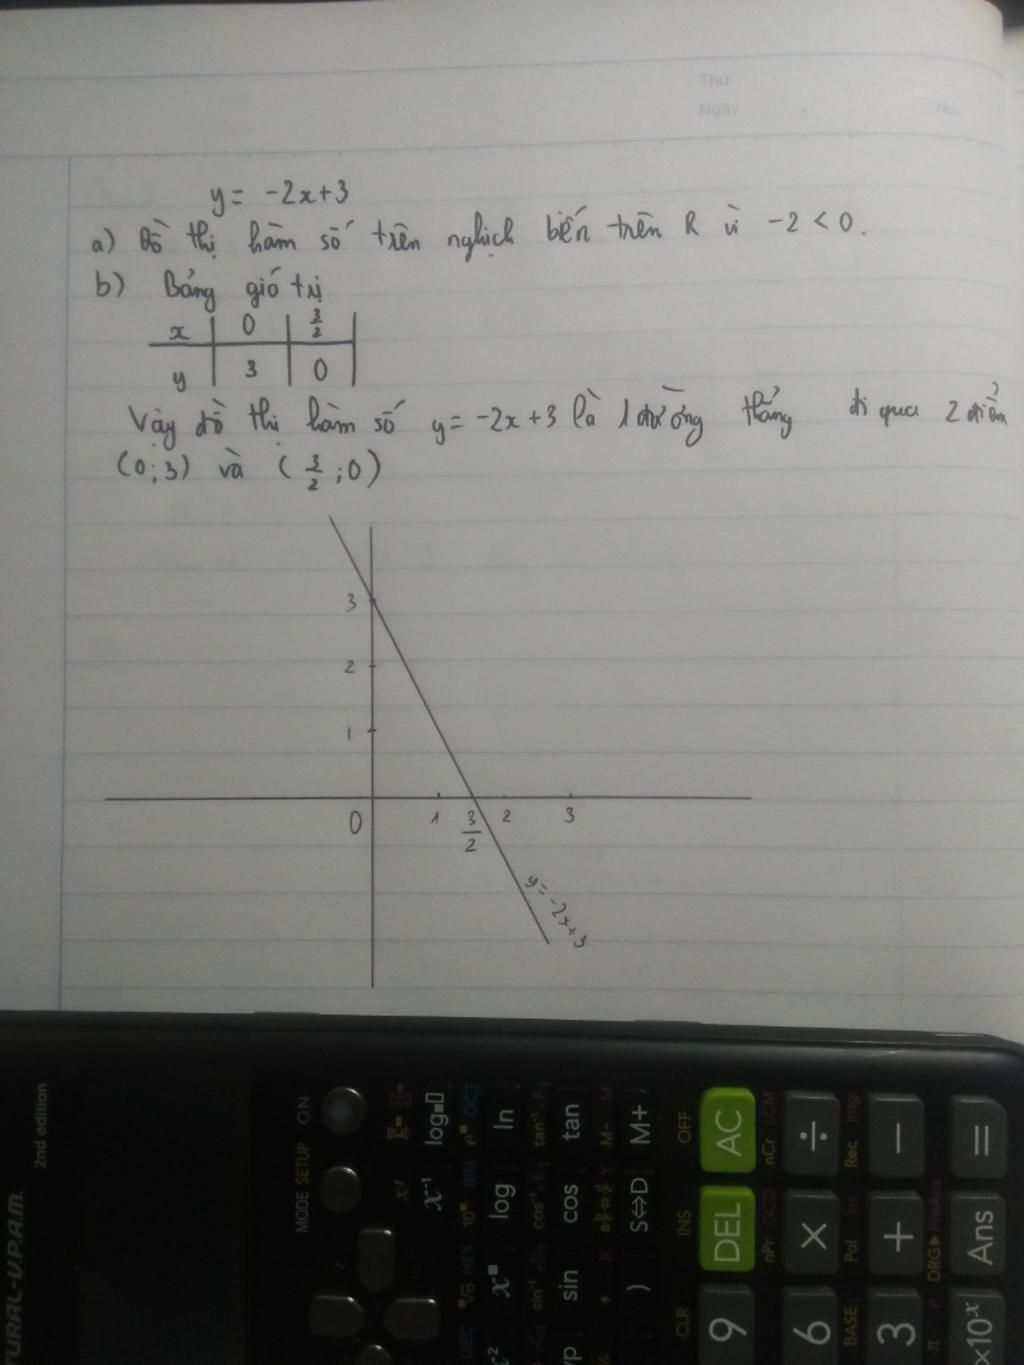 Thứ
Ngày
No.
y = -2x+3
a) Đồ thị hàm số trên nghịch biến trên R vì -2 < 0.
b) Bảng giá trị
x 0 3/2
y 3 0
Vậy đồ thị hàm số y = -2x + 3 là 1 đường thẳng đi qua 2 điểm
(0;3) và (3/2;0)
3
2
1
0 1 3/2 2 3
y = -2x+3
2nd edition
TURAL-V.P.A.M.
ON
MODE SETUP
x!
log
x⁻¹
OCT
BIN
HEX
DEC
ln
log
x■
10■
tan⁻¹
cos⁻¹
sin⁻¹
tan
cos
sin
yp
M-
M
M+
S⇔D
)
OFF
INS
CLR
AC
DEL
9
LCM
nCr
GCD
nPr
÷
×
6
Intg
Rec
Int
Pol
BASE
−
+
3
PreAns
DRG▶
π
e
=
Ans
×10ˣ